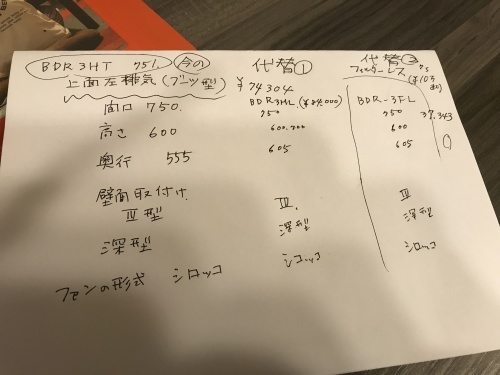 BDR3HT 751L 今の
上面左排気(ブーツ型)
間口 750.
高さ 600
奥行 555
壁面取付け.
Ⅲ型
深型
ファンの形式 シロッコ
代替①
¥74304
BDR3HL (¥84000)
750
600.700
605
Ⅲ.
深型
シロッコ
代替②
フィルターレス
BDR-3FL
750
600
605
Ⅲ
深型
シロッコ